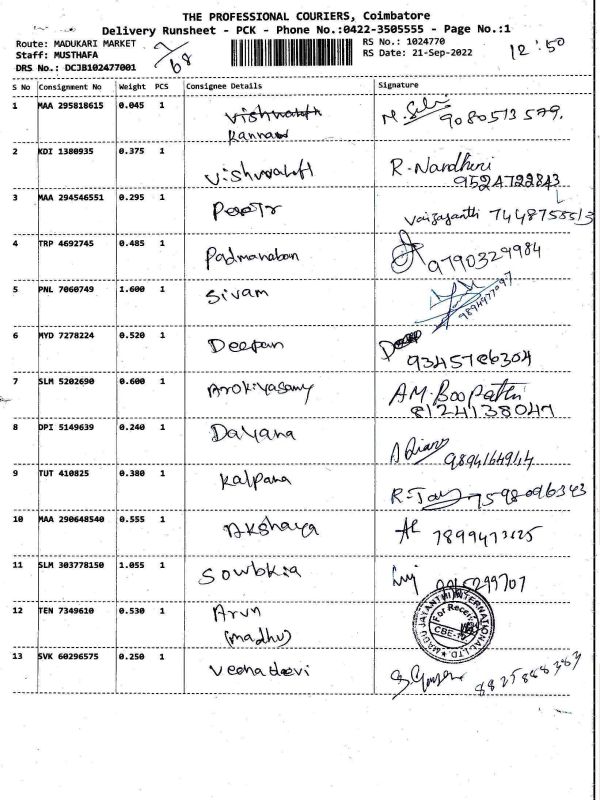 THE PROFESSIONAL COURIERS, Coimbatore
Delivery Runsheet - PCK - Phone No.:0422-3505555 - Page No.:1
Route: MADUKARI MARKET
RS No.: 1024770
Staff: MUSTHAFA
RS Date: 21-Sep-2022
DRS No.: DCJB102477001
12:50
S No Consignment No Weight PCS Consignee Details Signature
1 MAA 295818615 0.045 1
Kannan
9080513579.
2 KDI 1380935 0.375 1 R. Nandhini
9524722843
3 MAA 294546551 0.295 1 Vaijayanthi
4 TRP 4692745 0.485 1 Padmanaban 9790329984
5 PNL 7060749 1.600 1 Sivam 9894977097
6 MYD 7278224 0.520 1 Deepan
9345786304
7 SLM 5202690 0.600 1 Arokiyasamy A.M. Boopathi
8124138047
8 DPI 5149639 0.240 1 Dayana
9 TUT 410825 0.380 1 Kalpana 7598096343
10 MAA 290648540 0.555 1 Akshaya
11 SLM 303778150 1.055 1 Sowbkia
12 TEN 7349610 0.530 1 Arun
(madhu)
MADU JAYANTHI INTERNATIONAL LTD.
For Receipt
13 SVK 60296575 0.250 1 Veena devi 8825888383